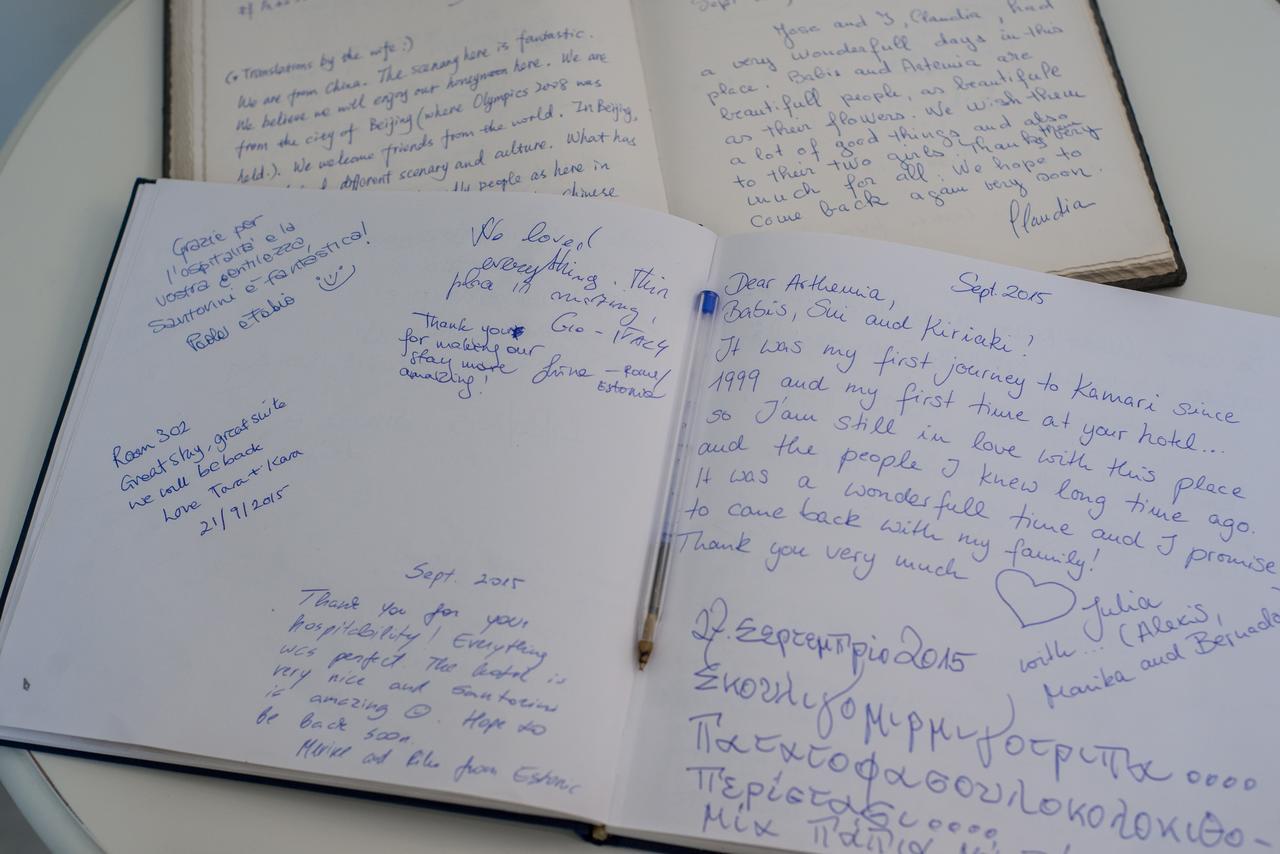 (* Translations by the wife :)
We are from China. The scenary here is fantastic.
We believe we will enjoy our honeymoon here. We are
from the city of Beijing (where Olympics 2008 was
held.). We welcome friends from the world. In Beijing,
different scenary and culture. What has
people as here in
chinese
Jose and I, Claudia, had
a very wonderfull days in this
place. Babis and Artemia are
beautifull people, as beautifull
as their flowers. We wish them
a lot of good things and also
to their two girls. Thank them very
much for all. We hope to
come back again very soon.
Claudia
Grazie per
l'ospitalità e la
vostra gentilezza,
Santorini è fantastica!
Paolo e Fabio
We loved
everything. This
place is amazing!
Gio - ITALY
Thank you
for making our
stay more
amazing!
- Rome/
Estonia
Room 302
Great stay, great suite
we will be back
Love Tara + Kara
21/9/2015
Sept. 2015
Thank you for your
hospitability! Everything
was perfect. The hotel is
very nice and Santorini
is amazing ☺. Hope to
be back soon.
from Estonia
Sept. 2015
Dear Arthemia,
Babis, Sui and Kiriaki!
It was my first journey to Kamari since
1999 and my first time at your hotel...
so I'am still in love with this place
and the people I knew long time ago.
It was a wonderfull time and I promise
to come back with my family!
Thank you very much
♡ Julia
with... (Alexis,
Marika and Bernada
27. Σερτεμπριο 2015
Σκουλιγομιρμιγοτριπα ....
Πατατοφασουλοκολοκιθο-
Περίστασι....
Μία Πάπια